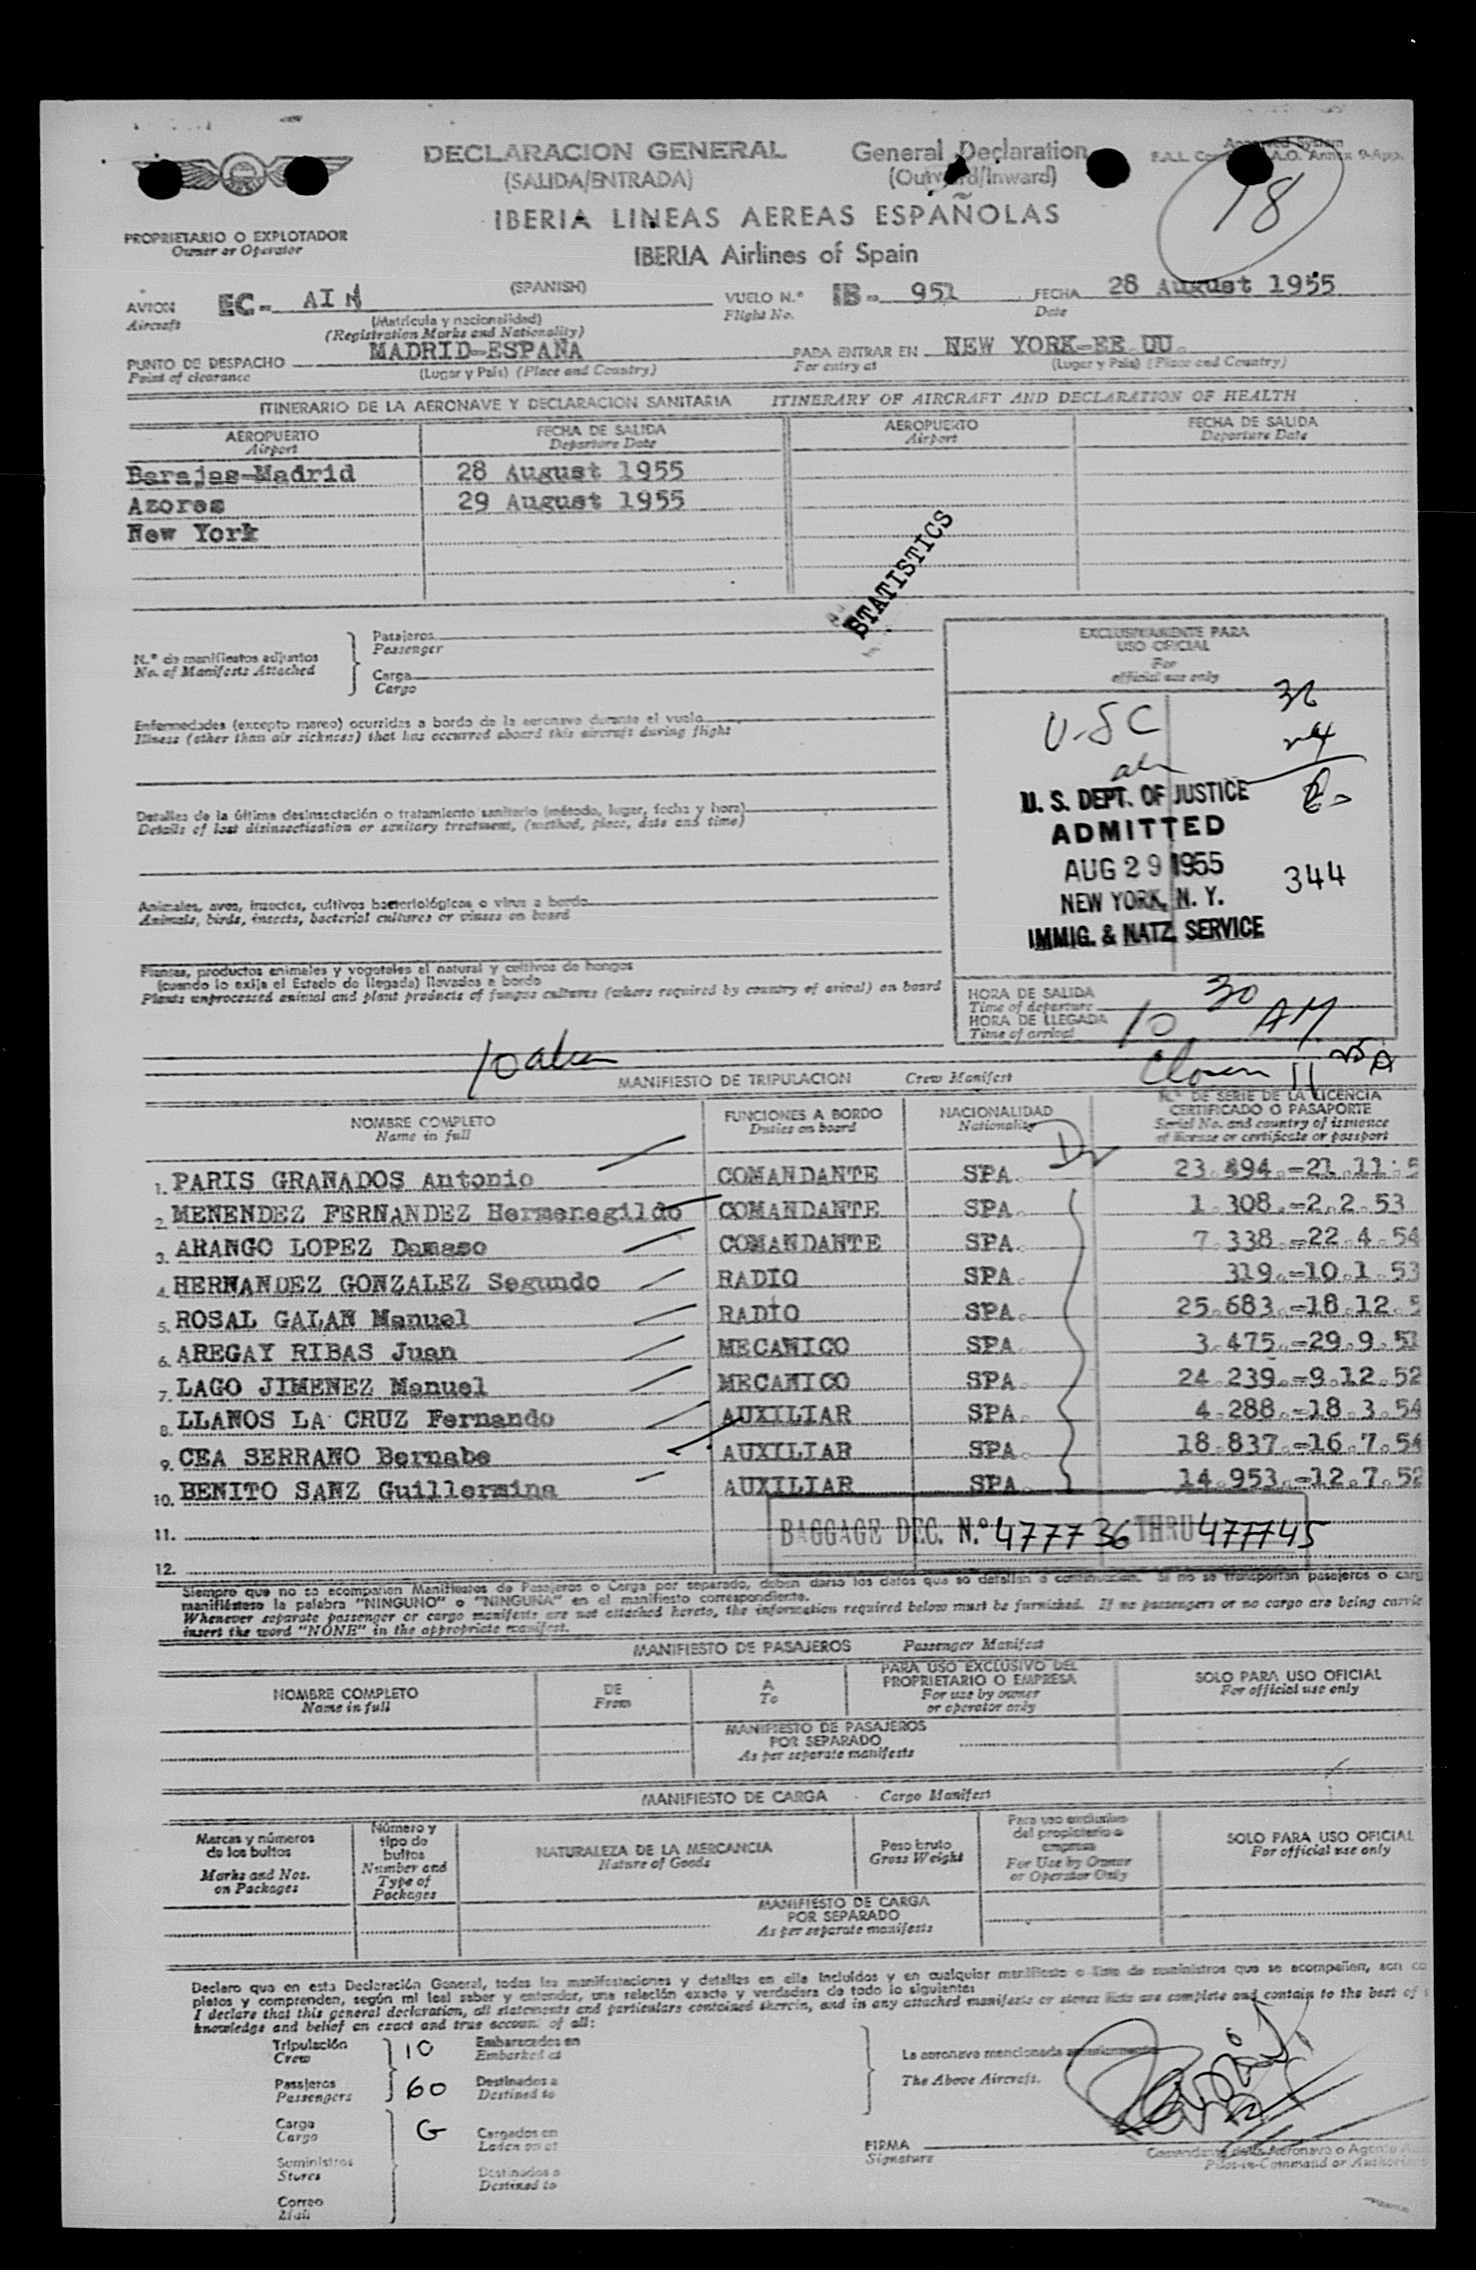 DECLARACION GENERAL General Declaration
(SALIDA/ENTRADA) (Outward/Inward)
18
IBERIA LINEAS AEREAS ESPAÑOLAS
IBERIA Airlines of Spain
PROPRIETARIO O EXPLOTADOR
Owner or Operator
AVION EC- AIN (SPANISH) VUELO N.º IB- 951 FECHA 28 August 1955
Aircraft (Matrícula y nacionalidad) Flight No. Date
(Registration Marks and Nationality)
PUNTO DE DESPACHO MADRID-ESPAÑA PARA ENTRAR EN NEW YORK-EE UU.
Point of clearance (Lugar y País) (Place and Country) For entry at (Lugar y País) (Place and Country)
ITINERARIO DE LA AERONAVE Y DECLARACION SANITARIA ITINERARY OF AIRCRAFT AND DECLARATION OF HEALTH
AEROPUERTO FECHA DE SALIDA AEROPUERTO FECHA DE SALIDA
Airport Departure Date Airport Departure Date
Barajas-Madrid 28 August 1955
Azores 29 August 1955
New York
STATISTICS
N.º de manifiestos adjuntos
No. of Manifests Attached
Pasajeros
Passenger
Carga
Cargo
Enfermedades (excepto mareo) ocurridas a bordo de la aeronave durante el vuelo
Illness (other than air sickness) that has occurred aboard this aircraft during flight
Detalles de la última desinsectación o tratamiento sanitario (método, lugar, fecha y hora)
Details of last disinsectisation or sanitary treatment, (method, place, date and time)
Animales, aves, insectos, cultivos bacteriológicos o virus a bordo
Animals, birds, insects, bacterial cultures or viruses on board
Plantas, productos animales y vegetales al natural y cultivos de hongos
(cuando lo exija el Estado de llegada) llevados a bordo
Plants unprocessed animal and plant products of fungus cultures (where required by country of arival) on board
EXCLUSIVAMENTE PARA
USO OFICIAL
For
official use only
USC 36
24
U. S. DEPT. OF JUSTICE
ADMITTED
AUG 29 1955 344
NEW YORK, N. Y.
IMMIG. & NATZ. SERVICE
HORA DE SALIDA
Time of departure
HORA DE LLEGADA 10 30 AM
Time of arrival
MANIFIESTO DE TRIPULACION Crew Manifest
NOMBRE COMPLETO FUNCIONES A BORDO NACIONALIDAD N.º DE SERIE DE LA LICENCIA
Name in full Duties on board Nationality CERTIFICADO O PASAPORTE
Serial No. and country of issuance
of license or certificate or passport
1. PARIS GRANADOS Antonio COMANDANTE SPA. 23.894.-21.11.5
2. MENENDEZ FERNANDEZ Hermenegildo COMANDANTE SPA. 1.308.-2.2.53
3. ARANGO LOPEZ Damaso COMANDANTE SPA. 7.338.-22.4.54
4. HERNANDEZ GONZALEZ Segundo RADIO SPA. 319.-10.1.53
5. ROSAL GALAN Manuel RADIO SPA. 25.683.-18.12.5
6. AREGAY RIBAS Juan MECANICO SPA. 3.475.-29.9.51
7. LAGO JIMENEZ Manuel MECANICO SPA. 24.239.-9.12.52
8. LLANOS LA CRUZ Fernando AUXILIAR SPA. 4.288.-18.3.54
9. CEA SERRANO Bernabe AUXILIAR SPA. 18.837.-16.7.54
10. BENITO SANZ Guillermina AUXILIAR SPA. 14.953.-12.7.52
11. BAGGAGE DEC. N.º 477736 THRU 477745
12.
Siempre que no se acompañen Manifiestos de Pasajeros o Carga por separado, deben darse los datos que se detallan a continuación. Si no se transportan pasajeros o carg
manifiéstese la palabra "NINGUNO" o "NINGUNA" en el manifiesto correspondiente.
Whenever separate passenger or cargo manifests are not attached hereto, the information required below must be furnished. If no passengers or no cargo are being carrie
insert the word "NONE" in the appropriate manifest.
MANIFIESTO DE PASAJEROS Passenger Manifest
NOMBRE COMPLETO DE A PARA USO EXCLUSIVO DEL SOLO PARA USO OFICIAL
Name in full From To PROPRIETARIO O EMPRESA For official use only
For use by owner
or operator only
MANIFIESTO DE PASAJEROS
POR SEPARADO
As per separate manifests
MANIFIESTO DE CARGA Cargo Manifest
Marcas y números
de los bultos
Marks and Nos.
on Packages
Número y
tipo de
bultos
Number and
Type of
Packages
NATURALEZA DE LA MERCANCIA
Nature of Goods
Peso bruto
Gross Weight
Para uso exclusivo
del propietario o
empresa
For Use by Owner
or Operator Only
SOLO PARA USO OFICIAL
For official use only
MANIFIESTO DE CARGA
POR SEPARADO
As per separate manifests
Declaro que en esta Declaración General, todas las manifestaciones y detalles en ella incluídos y en cualquier manifiesto o lista de suministros que se acompañen, son co
pletos y comprenden, según mi leal saber y entender, una relación exacta y verdadera de todo lo siguiente:
I declare that this general declaration, all statements and particulars contained therein, and in any attached manifests or stores lists are complete and contain to the best of
knowledge and belief an exact and true account of all:
Tripulación 10 Embarcados en
Crew Embarked at
Pasajeros 60 Destinados a
Passengers Destined to
Carga G Cargados en
Cargo Laden on at
Suministros
Stores Destinados a
Destined to
Correo
Mail
La aeronave mencionada anteriormente
The Above Aircraft.
FIRMA
Signature
Comandante de la Aeronave o Agente
Pilot-in-Command or